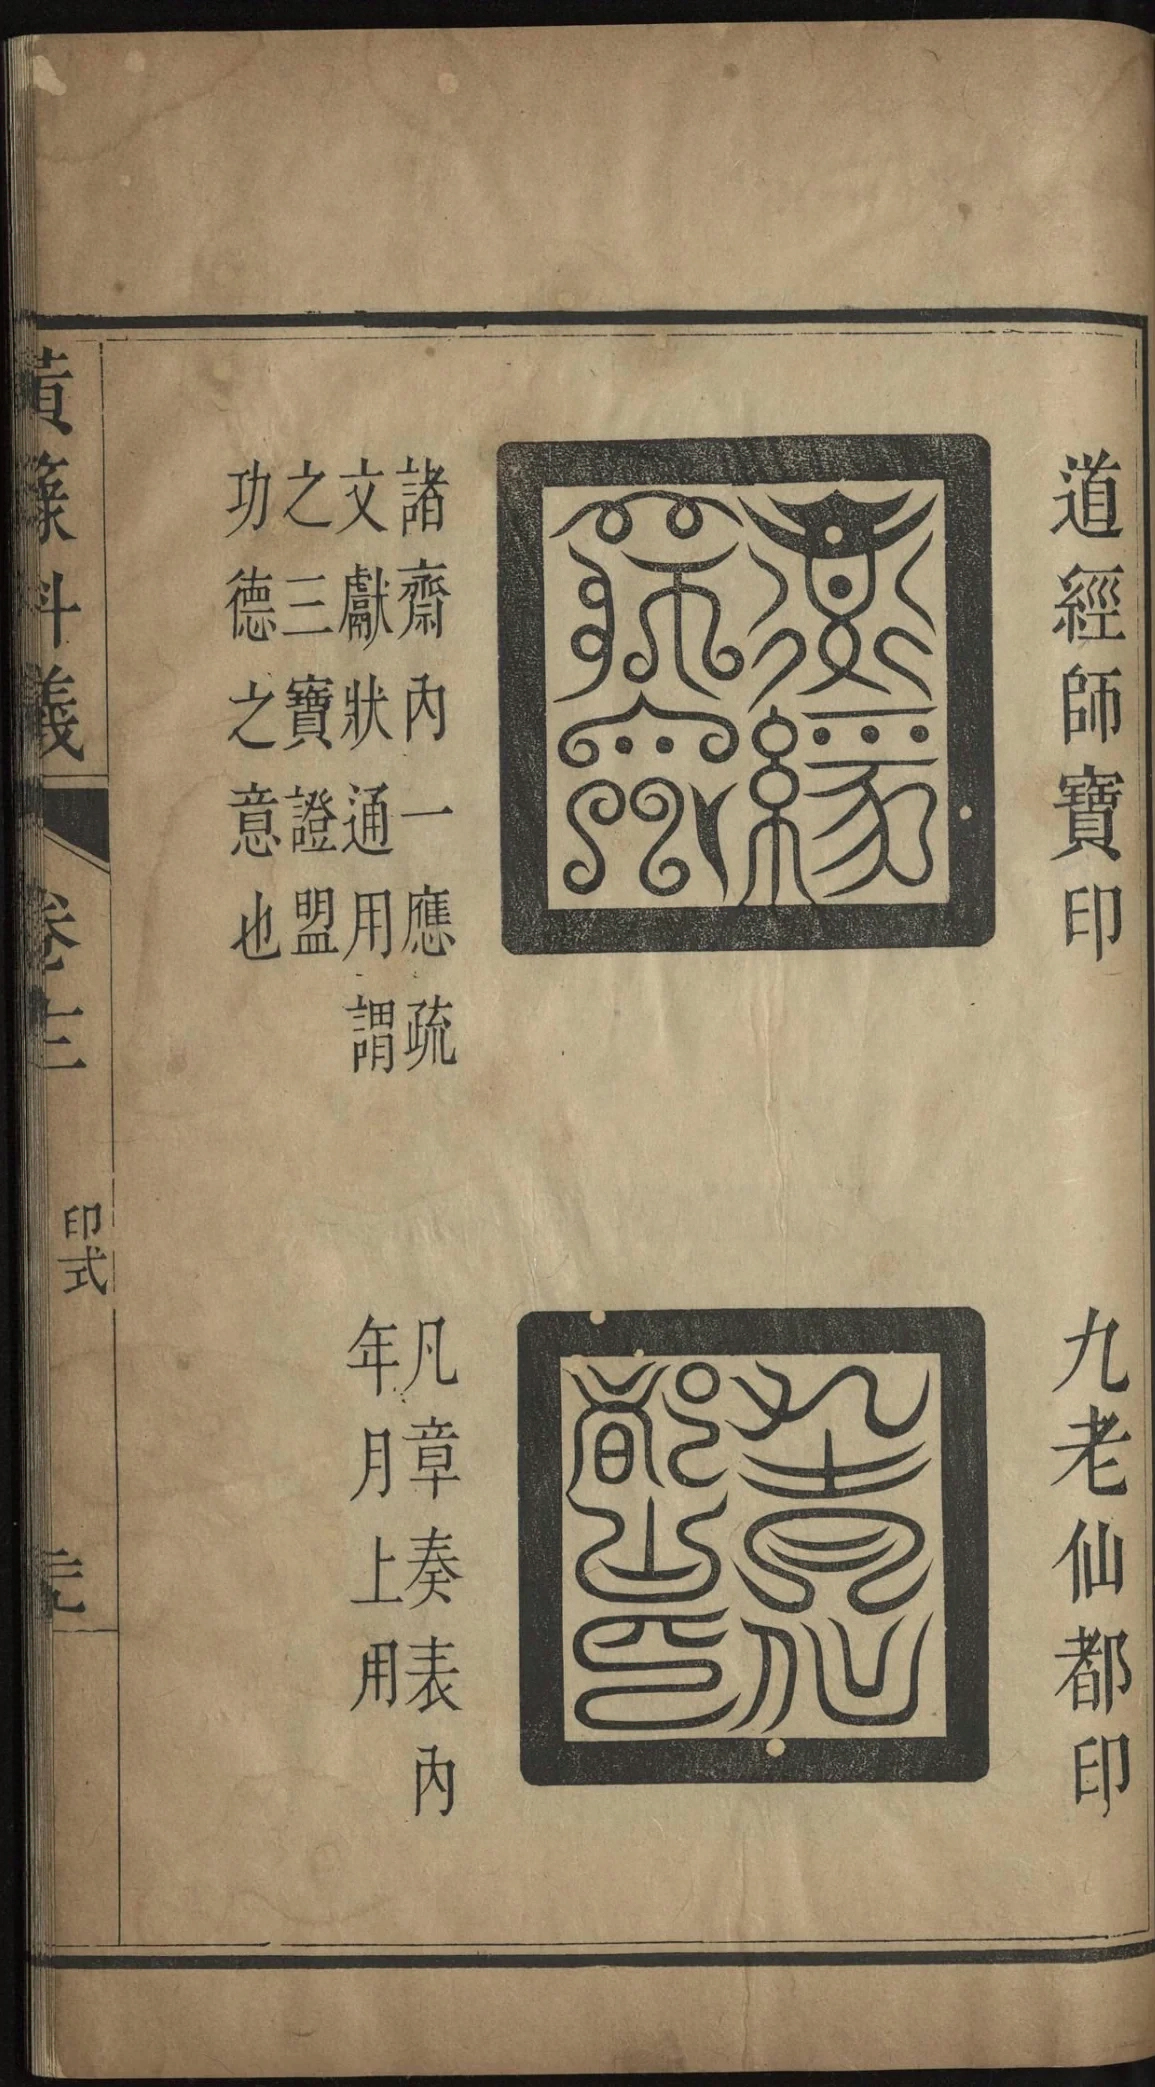 道經師寶印
諸齋內一應疏
文獻狀通用謂
之三寶證盟
功德之意也
九老仙都印
九老仙都印
凡章奏表內
年月上用
黃籙科儀
卷十二
印式